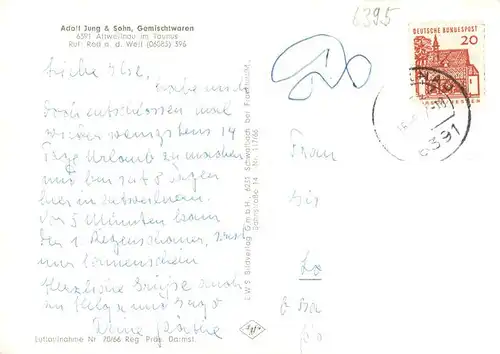 6395
Adolf Jung & Sohn, Gemischtwaren
6391 Altweilnau im Taunus
Ruf: Rod a. d. Weil (06083) 396
DEUTSCHE BUNDESPOST
20
HESSEN
6391
Liebe Ilse,
habe mich
doch entschlossen mal
wieder wenigstens 14
Tage Urlaub zu machen
und bin seit 8 Tagen
hier in Altweilnau.
Vor 5 Minuten kam
der 1. Regenschauer, sonst
nur Sonnenschein
Herzliche Grüße auch
an Helga und Ingo
Deine Käthe
E.W.S Bildverlag G.m.b.H., 6231 Schwalbach bei Frankfurt/M.
Nr. 117/66
Frau
Luftaufnahme Nr 70/66 Reg Präs. Darmst.